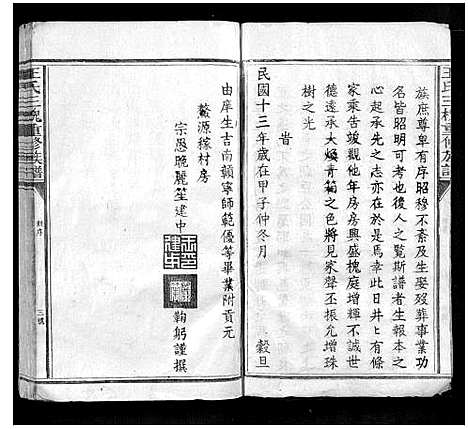 王氏三槐重修族譜
族庶尊卑有序昭穆不紊及生娶殁葬事業功
名皆昭明可考也後人之覧斯譜者生報本之
心起承先之志亦在於是焉幸此日井ヒ有條
家乘告竣觀他年房房興盛槐庭增輝不誠世
德遠承大煥青箱之色將見家聲丕振允增珠
樹之光
旹
民國十三年歲在甲子仲冬月　穀旦
由庠生吉南贛寧師範優等畢業附貢元
鰲源稼村房
宗愚晚麗笙建中
鞠躬謹撰
王氏三槐重修族譜
序
三號